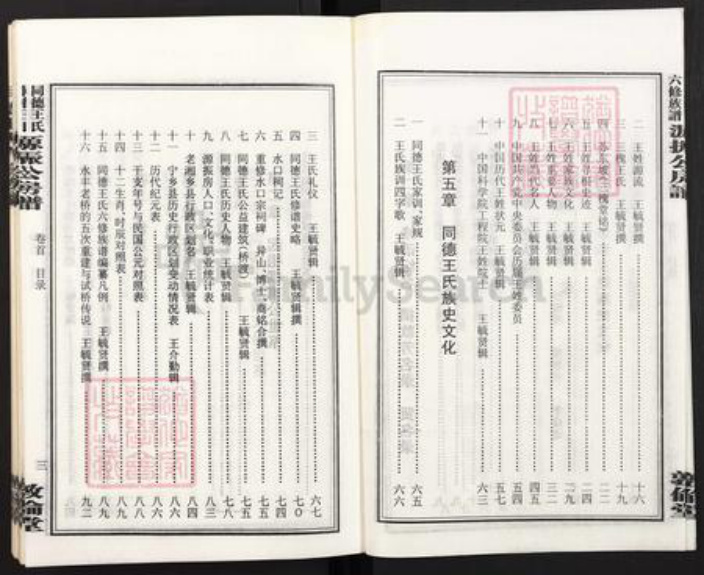 六修族谱
二 王姓源流 王毓贤撰 十六
三 三槐王氏 王毓贤撰 十九
四 苏东坡《三槐堂铭》 二二
五 王姓寻根史迹 王毓贤辑 二四
六 王姓家族文化 王毓贤辑 二九
七 王姓重要人物 王毓贤辑 三二
八 王姓当代名人 王毓贤辑 五四
九 中国共产党中央委员会历届王姓委员
十 中国历代王姓状元 王毓贤辑
十一 中国科学院工程院王姓院士 王毓贤辑 六三
第五章 同德王氏族史文化
一 同德王氏家训、家规 六五
二 王氏族训四字歌 王毓贤辑 六六
三 王氏礼仪 王毓贤辑 六七
四 同德王氏修谱史略 王毓贤辑撰 七〇
五 水口祠记 七四
六 重修水口宗祠碑 异山、博士、商铭合撰 七五
七 同德王氏公益建筑(桥渡) 王毓贤辑 七六
八 同德王氏历史人物 王毓贤辑 七八
九 源振房人口、文化、职业统计表 八三
十 老湘乡县行政区划名 王毓贤辑 八四
十一 宁乡县历史行政区划变动情况表 王介勤辑 八六
十二 历代纪元表 八六
十三 干支年号与民国公元对照表 八八
十四 十二生肖、时辰对照表 八九
十五 同德王氏六修族谱编纂凡例 王毓贤撰 八九
十六 永丰老桥的五次重建与试桥传说 王毓贤撰 九二
同德王氏
源振公房谱
卷首 目录
三
敦伦堂
FamilySearch